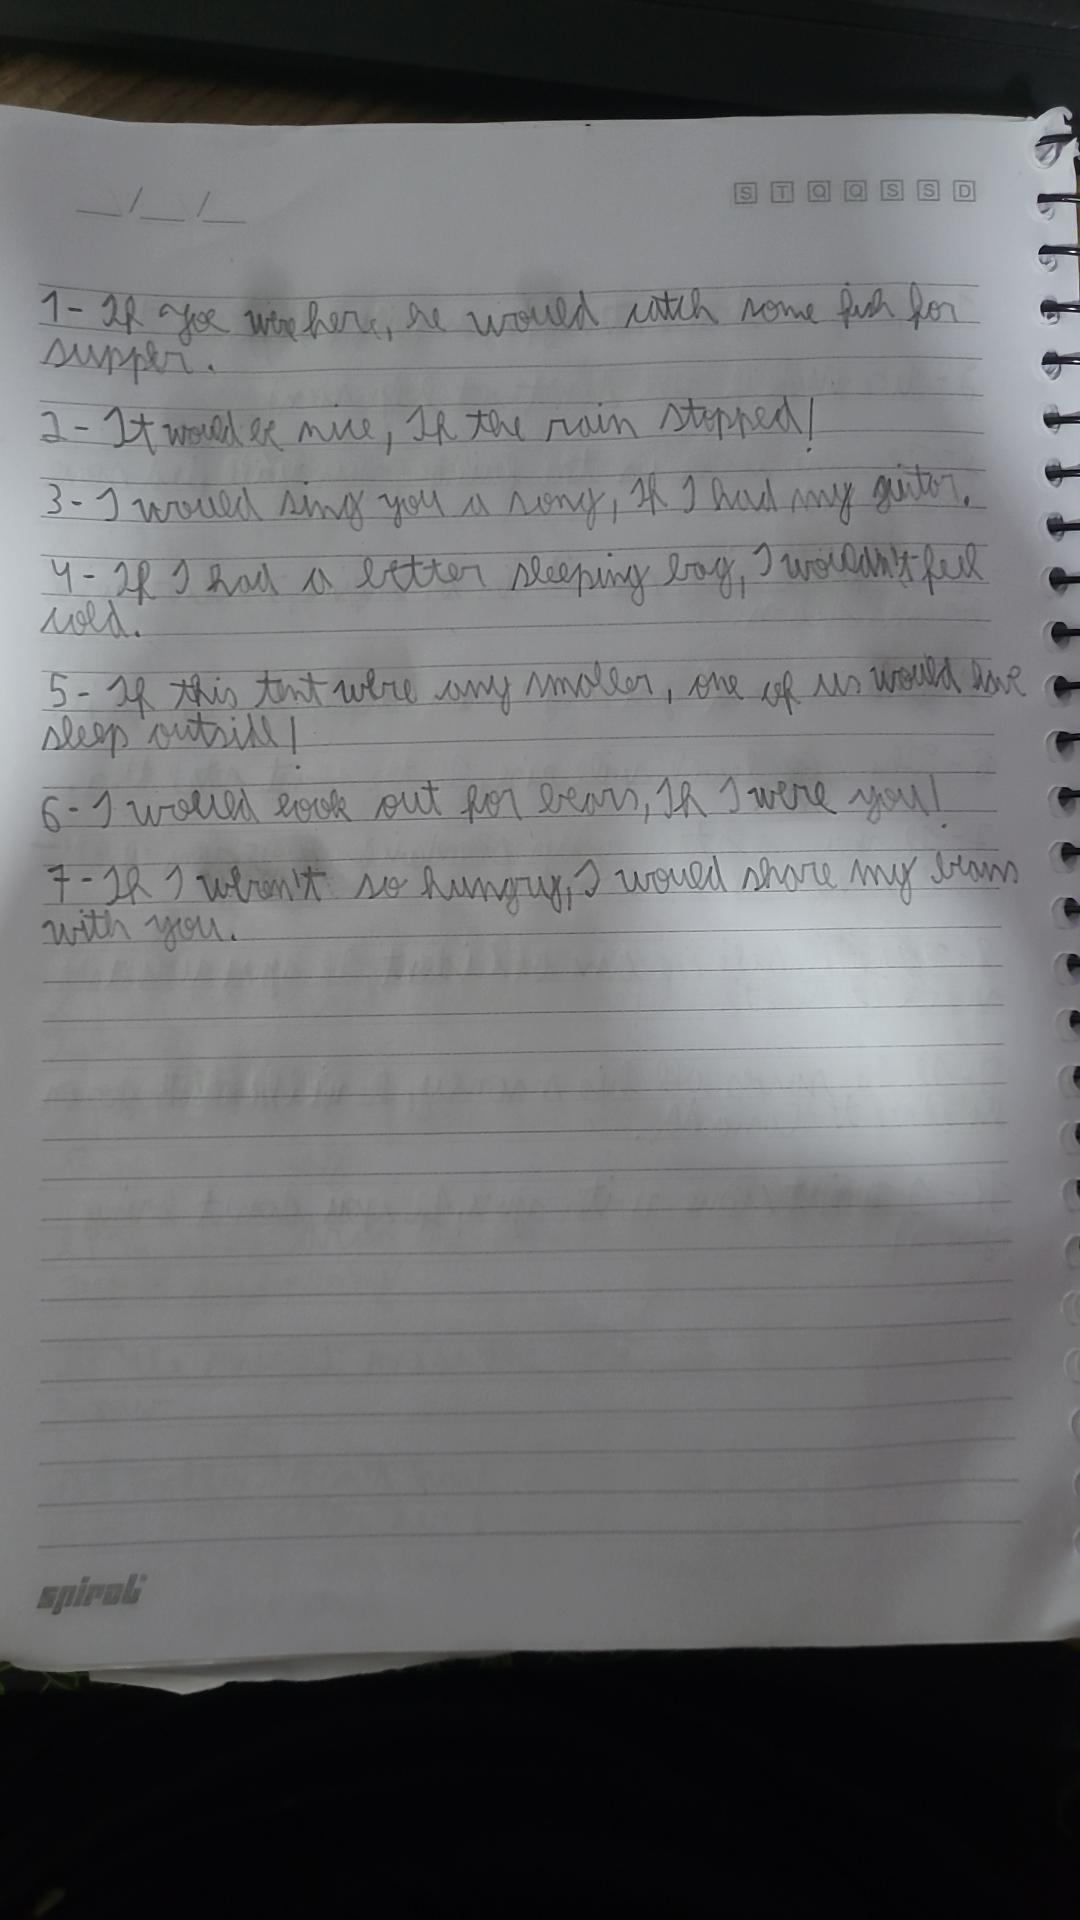 __/__/__
S T Q Q S S D
1- If Joe were here, he would catch some fish for
supper.
2- It would be nice, If the rain stopped!
3- I would sing you a song, If I had my guitar.
4- If I had a better sleeping bag, I wouldn't feel
cold.
5- If this tent were any smaller, one of us would have
sleep outside!
6- I would look out for bears, If I were you!
7- If I weren't so hungry, I would share my beans
with you.
spiral